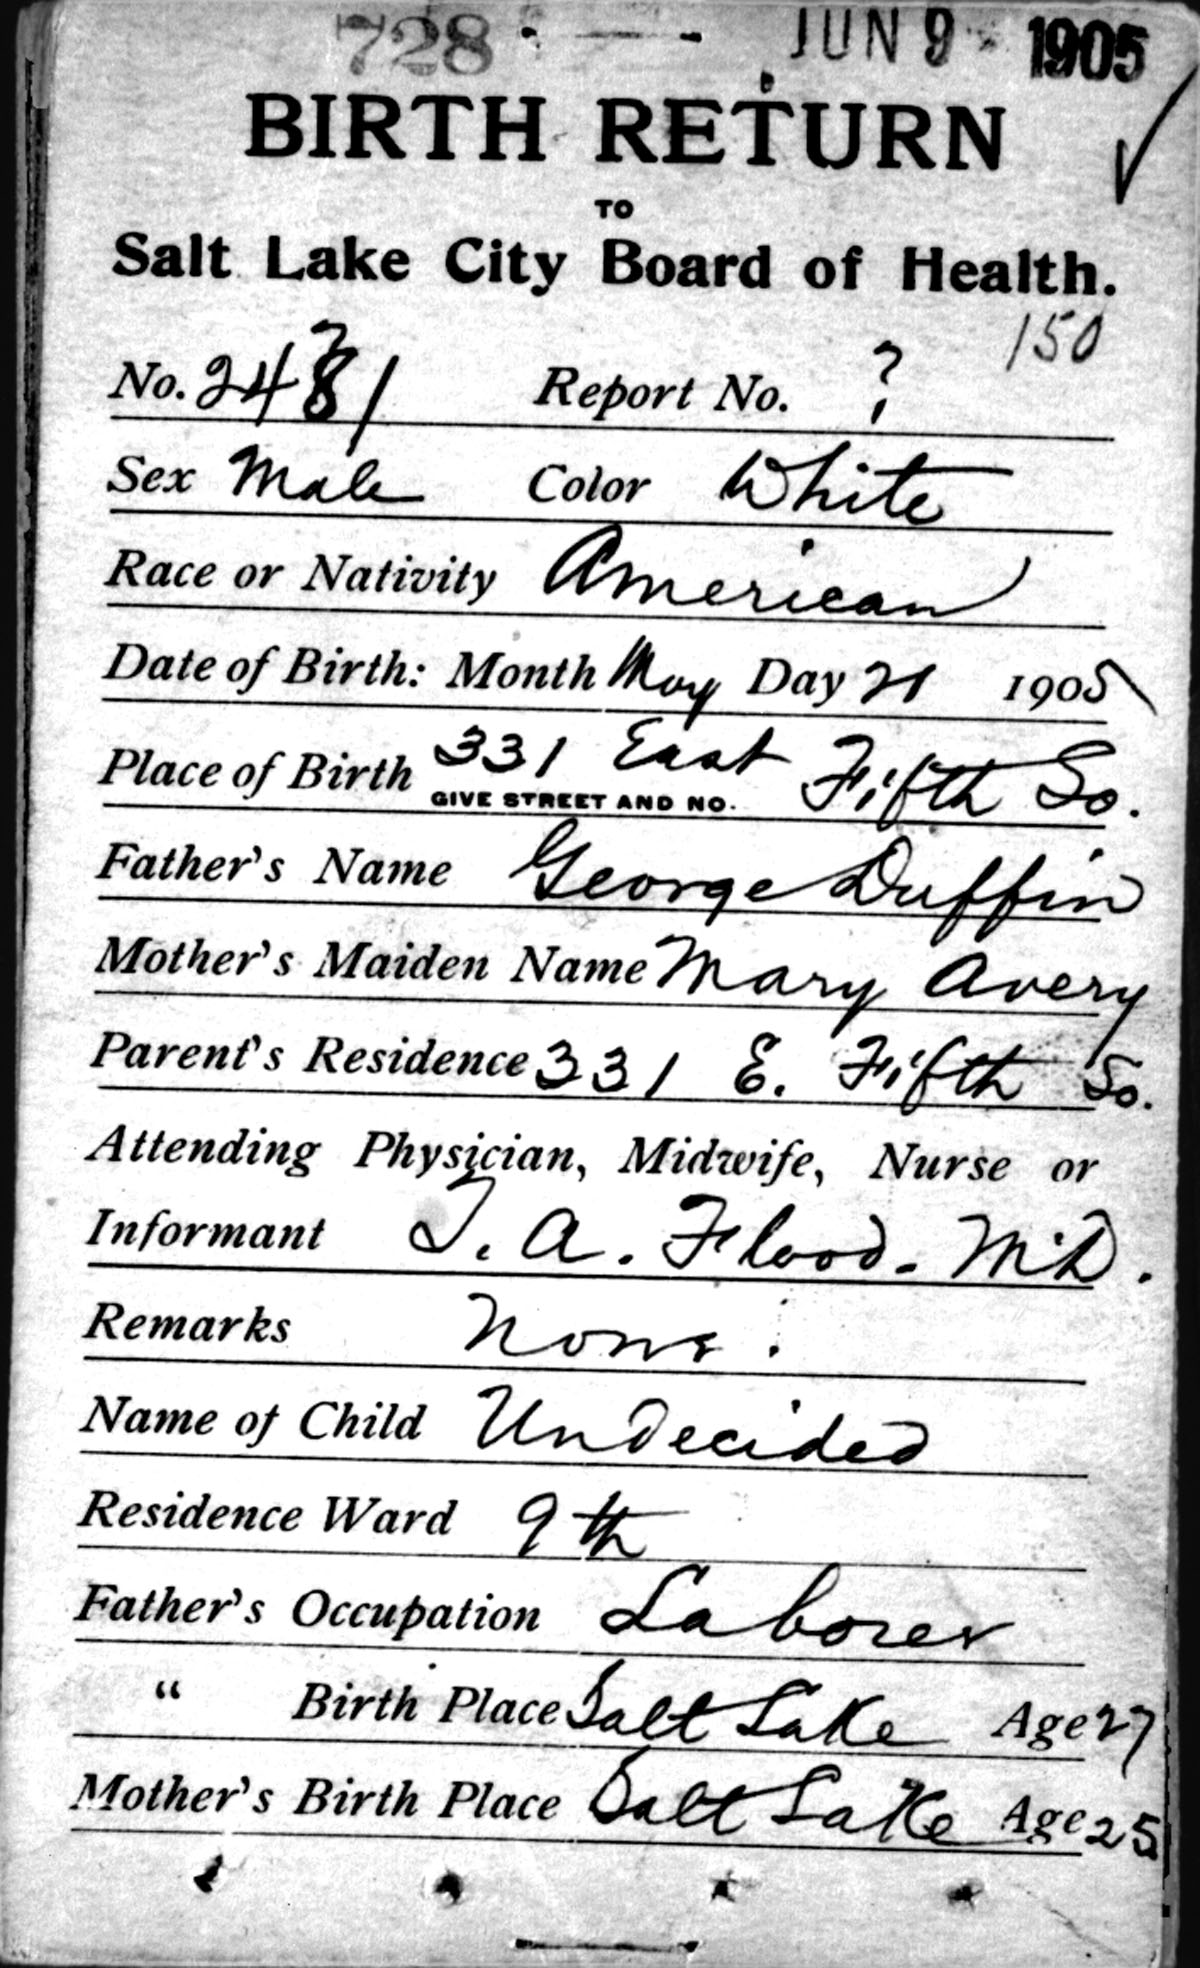 728 JUN 9 1905
BIRTH RETURN
TO
Salt Lake City Board of Health.
150
No. 2431 Report No. ?
Sex Male Color White
Race or Nativity American
Date of Birth: Month May Day 21 1905
Place of Birth 331 East Fifth So.
GIVE STREET AND NO.
Father's Name George Duffin
Mother's Maiden Name Mary Avery
Parent's Residence 331 E. Fifth So.
Attending Physician, Midwife, Nurse or
Informant T. A. Flood. M.D.
Remarks None.
Name of Child Undecided
Residence Ward 9th
Father's Occupation Laborer
" Birth Place Salt Lake Age 27
Mother's Birth Place Salt Lake Age 25